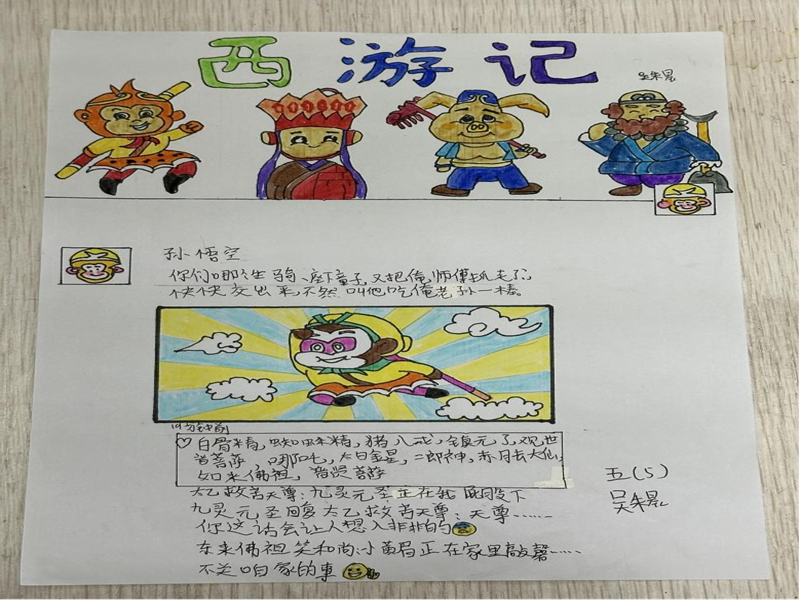 西游记
吴朱昱
孙悟空
你们哪个坐骑、座下童子,又把俺师傅抓走了,
快快交出来,不然叫他吃俺老孙一棒。
19分钟前
♡白骨精,蜘蛛精,猪八戒,镇元子,观世
音菩萨,哪吒,太白金星,二郎神,赤脚大仙,
如来佛祖,普贤菩萨
太乙救苦天尊:九灵元圣正在我屁股下
九灵元圣回复太乙救苦天尊:天尊……
你这话会让人想入非非的
东来佛祖笑和尚:小黄眉正在家里敲磬……
不关咱家的事
五(5)
吴朱昱